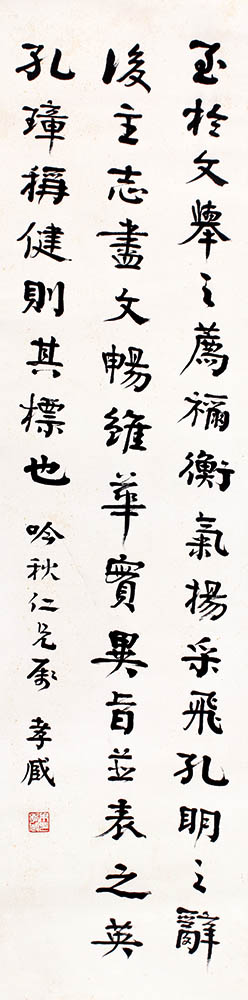 至於文舉之薦禰衡氣揚采飛孔明之辭
後主志盡文暢雖華實異旨並表之英
孔璋稱健則其標也
吟秋仁兄屬 孝臧